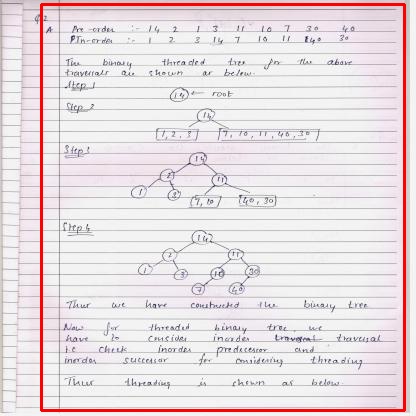 Q2
A Pre-order :- 14 2 1 3 11 10 7 30 40
In-order :- 1 2 3 14 7 10 11 40 30
The binary threaded tree for the above
traversals are shown as below.
Step 1
14 ← root
Step 2
14
1, 2, 3 7, 10, 11, 40, 30
Step 3
14
2 11
1 3 7, 10 40, 30
Step 4
14
2 11
1 3 10 30
7 40
Thus we have constructed the binary tree
Now for threaded binary tree, we
have to consider inorder traversal
i.e check inorder predecessor and
inorder successor for considering threading
Thus threading is shown as below.